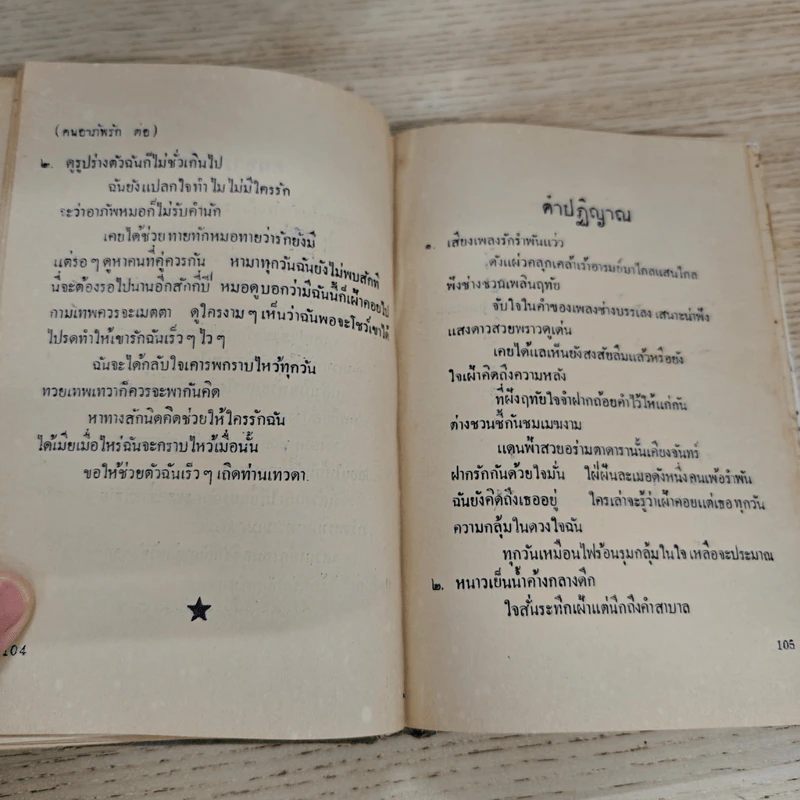 (คนอาภัพรัก ต่อ)
๒. ดูรูปร่างตัวฉันก็ไม่ชั่วเกินไป
ฉันยังแปลกใจทำไม ไม่มีใครรัก
จะว่าอาภัพหมอก็ไม่รับคำนัก
เคยได้ช่วยทายทักหมอทายว่ารักยังมี
แต่รอๆ ดูหาคนที่คู่ควรกัน หามาทุกวันฉันยังไม่พบสักที
นี่จะต้องรอไปนานอีกสักกี่ปี หมอดูบอกว่ามีฉันนี้ก็เฝ้าคอยไป
กามเทพควรจะเมตตา ดูใครงามๆ เห็นว่าฉันพอจะโชว์เขาได้
โปรดทำให้เขารักฉันเร็วๆ ไวๆ
ฉันจะได้กลับใจเคารพกราบไหว้ทุกวัน
ทวยเทพเทวาก็ควรจะพากันคิด
หาทางสักนิดคิดช่วยให้ใครรักฉัน
ได้เมียเมื่อไหร่ฉันจะกราบไหว้เมื่อนั้น
ขอให้ช่วยตัวฉันเร็วๆ เถิดท่านเทวดา.
104
คำปฏิญาณ
๑. เสียงเพลงรักรำพันแว่ว
ดังแผ่วคลุกเคล้าเร้าอารมย์มาไกลแสนไกล
พึงช่างชวนเพลินฤทัย
จับใจในคำของเพลงช่างบรรเลง เสนาะน่าพึง
แสงดาวสวยพราวดูเด่น
เคยได้แลเห็นยังสงสัยลืมแล้วหรือยัง
ใจเฝ้าคิดถึงความหลัง
ที่ฝังฤทัยใจจำฝากถ้อยคำไว้ให้แก่กัน
ต่างชวนชี้กันชมเมฆงาม
แดนฟ้าสวยอร่ามตาดารานั้นเคียงจันทร์
ฝากรักกันด้วยใจมั่น ใฝ่ฝันละเมอดังหนึ่งคนเพ้อรำพัน
ฉันยังคิดถึงเธออยู่ ใครเล่าจะรู้ว่าเฝ้าคอยแต่เธอทุกวัน
ความกลุ้มในดวงใจฉัน
ทุกวันเหมือนไฟร้อนรุมกลุ้มในใจ เหลือจะประมาณ
๒. หนาวเย็นน้ำค้างกลางดึก
ใจสั่นระทึกเฝ้าแต่นึกถึงคำสาบาล
105